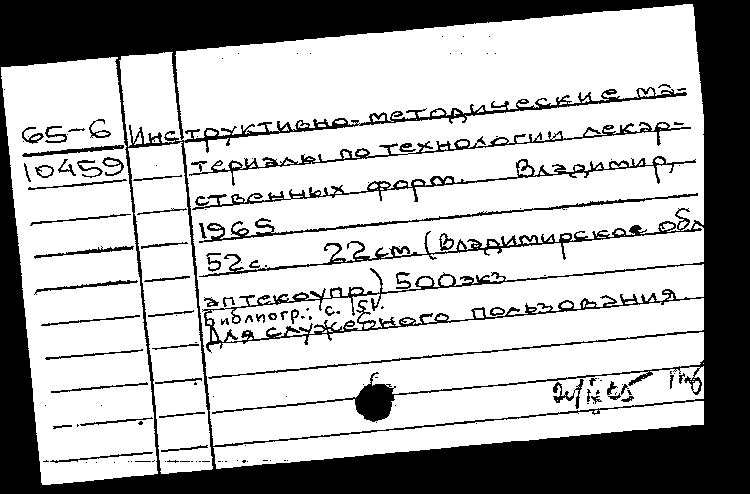 65-6
10459
Инструктивно-методические ма-
териалы по технологии лекар-
ственных форм. Владимир,
1965
52с. 22см. (Владимирское обл
аптекоупр.) 500экз
Библиогр.: с. 51.
Для служебного пользования